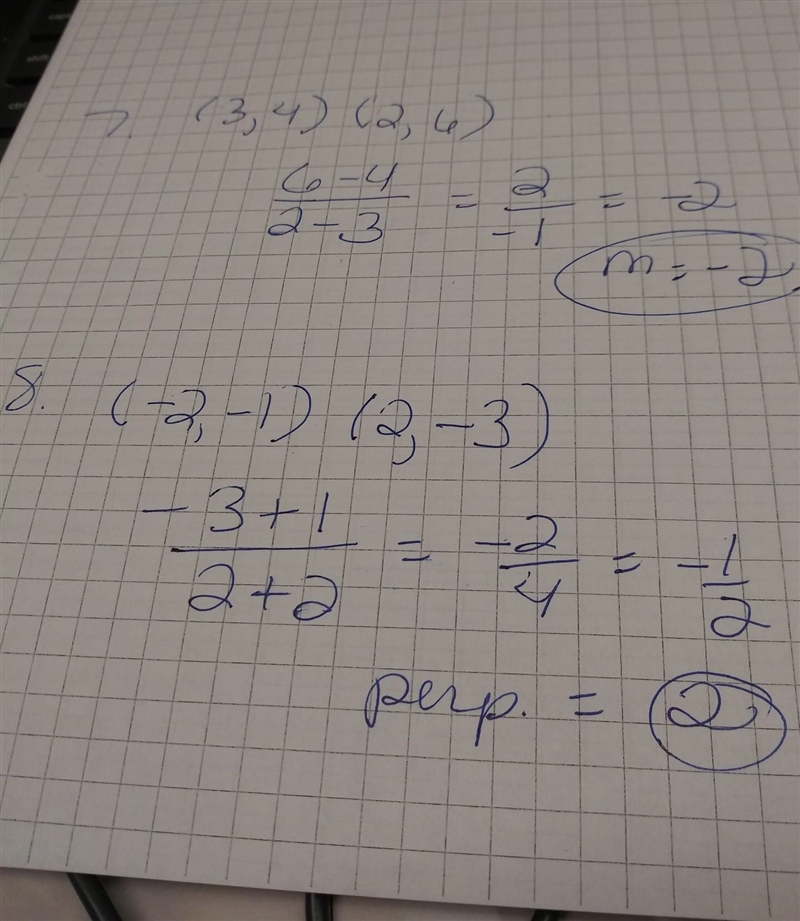 7. (3,4) (2,6)
6-4/2-3 = 2/-1 = -2
m = -2
8. (-2,-1) (2,-3)
-3+1/2+2 = -2/4 = -1/2
perp. = 2